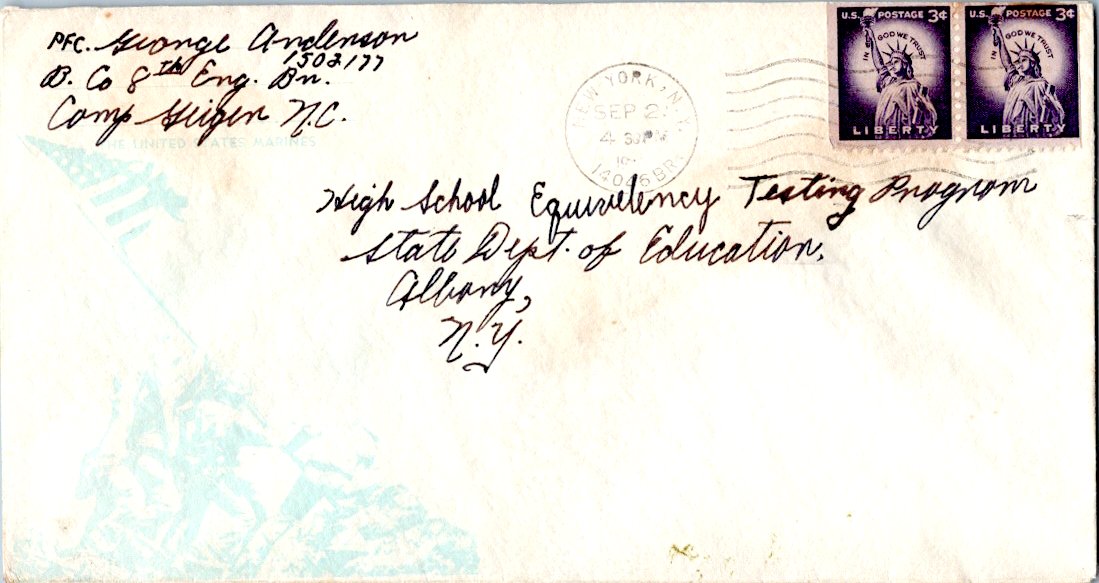 PFC. George Anderson
1502177
B. Co 8th Eng. Bn.
Camp Geiger N.C.
THE UNITED STATES MARINES
NEW YORK, N.Y.
SEP 2
4 PM
14046 BR.
U.S. POSTAGE 3¢
IN GOD WE TRUST
LIBERTY
U.S. POSTAGE 3¢
IN GOD WE TRUST
LIBERTY
High School Equivelency Testing Program
State Dept. of Education,
Albany,
N.Y.